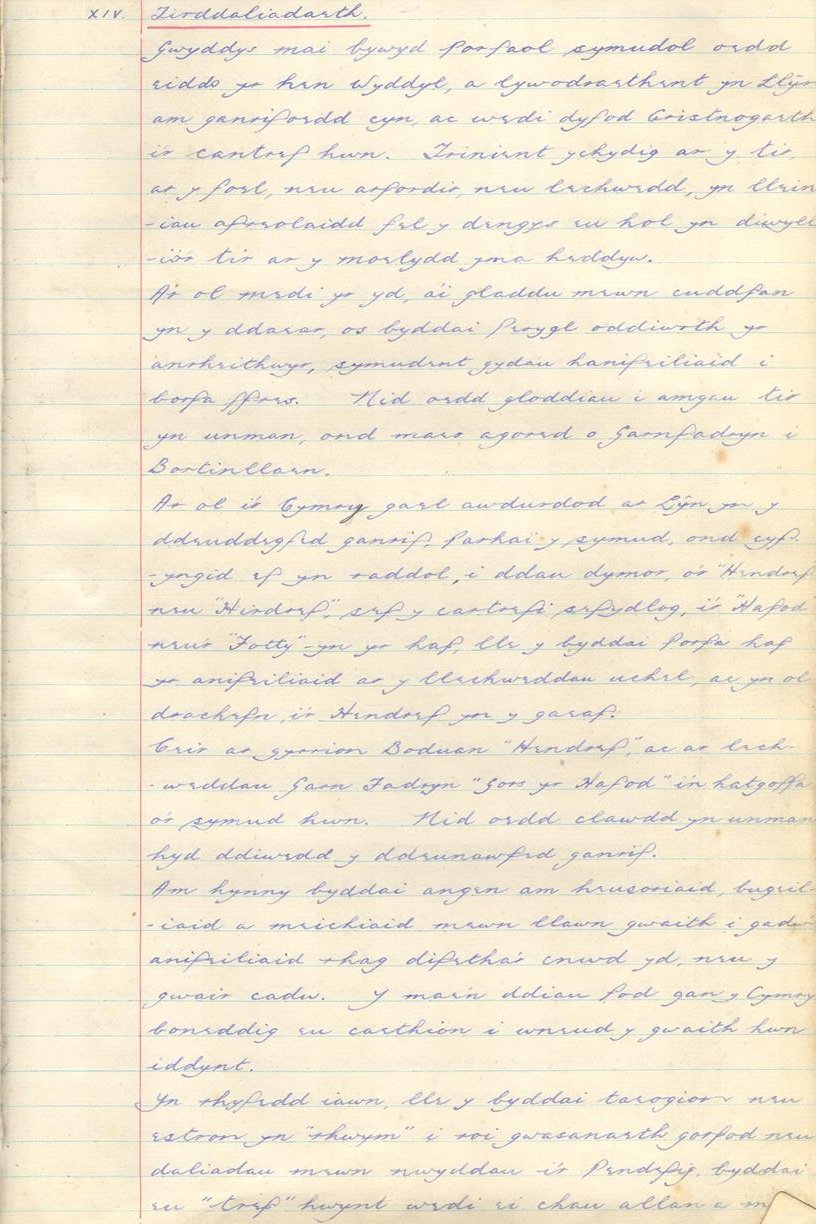 XIV. Tirddaliadaeth.
Gwyddys mai bywyd porfaol symudol oedd
eiddo yr hen Wyddyl, a lywodraethent yn Llŷn
am ganrifoedd cyn, ac wedi dyfod Cristnogaeth
i'r cantref hwn. Trinient ychydig ar y tir,
ar y foel, neu arfordir, neu lechwedd, yn llein
-iau afreolaidd fel y dengys eu hol yn diwyll
-io'r tir ar y moelydd yma heddyw.
Ar ol medi yr yd, a'i gladdu mewn cuddfan
yn y ddaear, os byddai perygl oddiwrth yr
anrheithwyr, symudent gyda'u hanifeiliaid i
borfa ffres. Nid oedd gloddiau i amgau tir
yn unman, ond maes agored o Garnfadryn i
Bortinllaen.
Ar ol i'r Cymry gael awdurdod ar Lŷn yn y
ddeuddegfed ganrif, parhai y symud, ond cyf-
-yngid ef yn raddol, i ddau dymor, o'r "Hendref
neu "Hirdref", sef y cartrefi sefydlog, i'r "Hafod"
neu'r "Fotty" yn yr haf, lle y byddai porfa haf
yr anifeiliaid ar y llechweddau uchel, ac yn ol
drachefn, i'r Hendref yn y gaeaf.
Ceir ar gyrrion Boduan "Hendref", ac ar lech-
-weddau Garn Fadryn "Gors yr Hafod" i'n hatgoffa
o'r symud hwn. Nid oedd clawdd yn unman
hyd ddiwedd y ddeunawfed ganrif.
Am hynny byddai angen am heusoriaid, bugeil-
-iaid a meichiaid mewn llawn gwaith i gadw'r
anifeiliaid rhag difetha'r cnwd yd, neu y
gwair cadw. Y mae'n ddiau fod gan y Cymry
boneddig eu caethion i wneud y gwaith hwn
iddynt.
Yn rhyfedd iawn, lle y byddai taeogion neu
estron yn "rhwym" i roi gwasanaeth gorfod neu
daliadau mewn nwyddau i'r Pendefig, byddai
eu "tref" hwynt wedi ei chau allan a